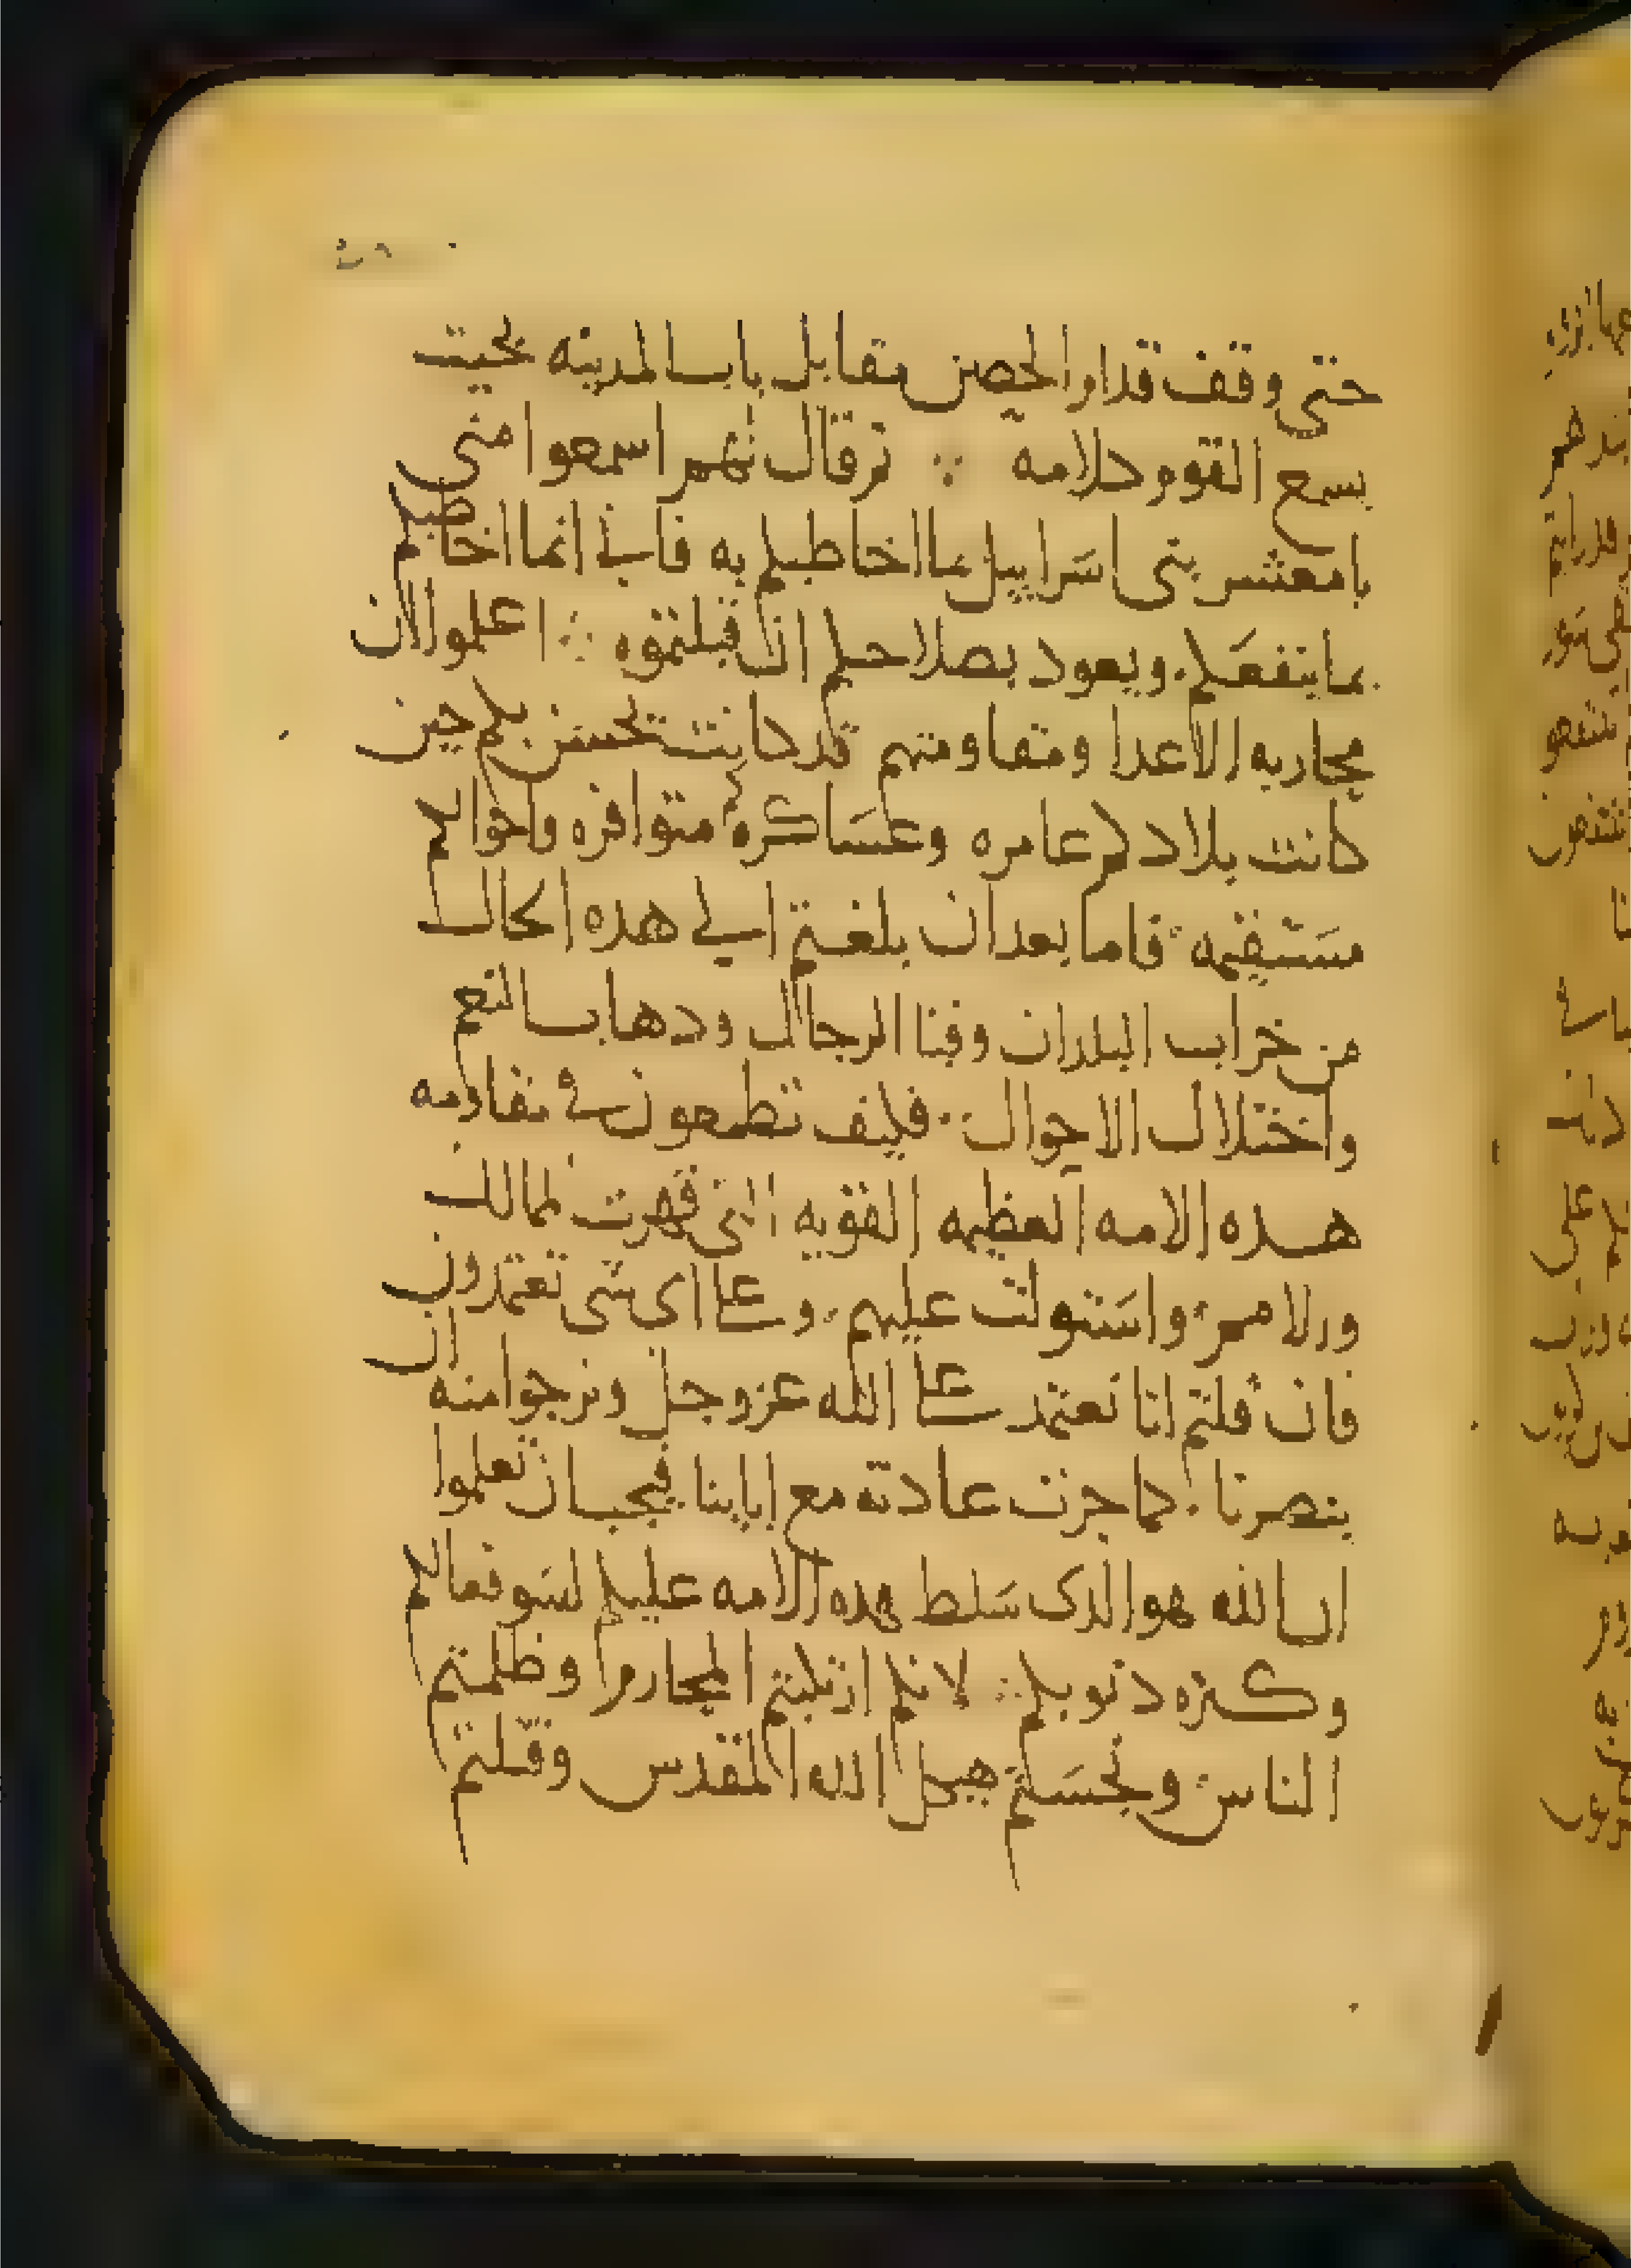 حتى وقف قدام الحصن مقابل باب المدينه بحيت
يسمع القوم كلامه ∴ ثم قال لهم اسمعوا منى
يا معشر بنى اسَراييل ما اخاطبكم به فاني انما اخاطبكم
بما ينفعكم. ويعود بصلاحكم ان قبلتموه ∴ اعلموا ان
محاربه الاعدا ومقاومتهم قد كانت تحسن بكم حين
كانت بلادكم عامره وعسَاكركم متوافره واحوالكم
مسَتقيمه. فاما بعد ان بلغتم الي هده الحال
من خراب البلدان وفنا الرجال ودهاب النعم
واختلال الاحوال. فكيف تطمعون في مقاومه
هده الامه العظيمه القويه التى قهرت ممالك
وراامم. واسَتولت عليهم. وعلى اى شى تعتمدون
فان قلتم انا نعتمد على الله عز وجل ونرجوا منه ان
ينصرنا. كما جرت عادته مع ابابنا. فيجب ان تعلموا
ان الله هو الدى سَلط هده الامه عليكم لسَو فعالكم
وكتره دنوبكم ∴ لانكم ارتكبتم المحارم وظلمتم
الناس. ونجسَتم هيكل الله المقدس وقتلتم